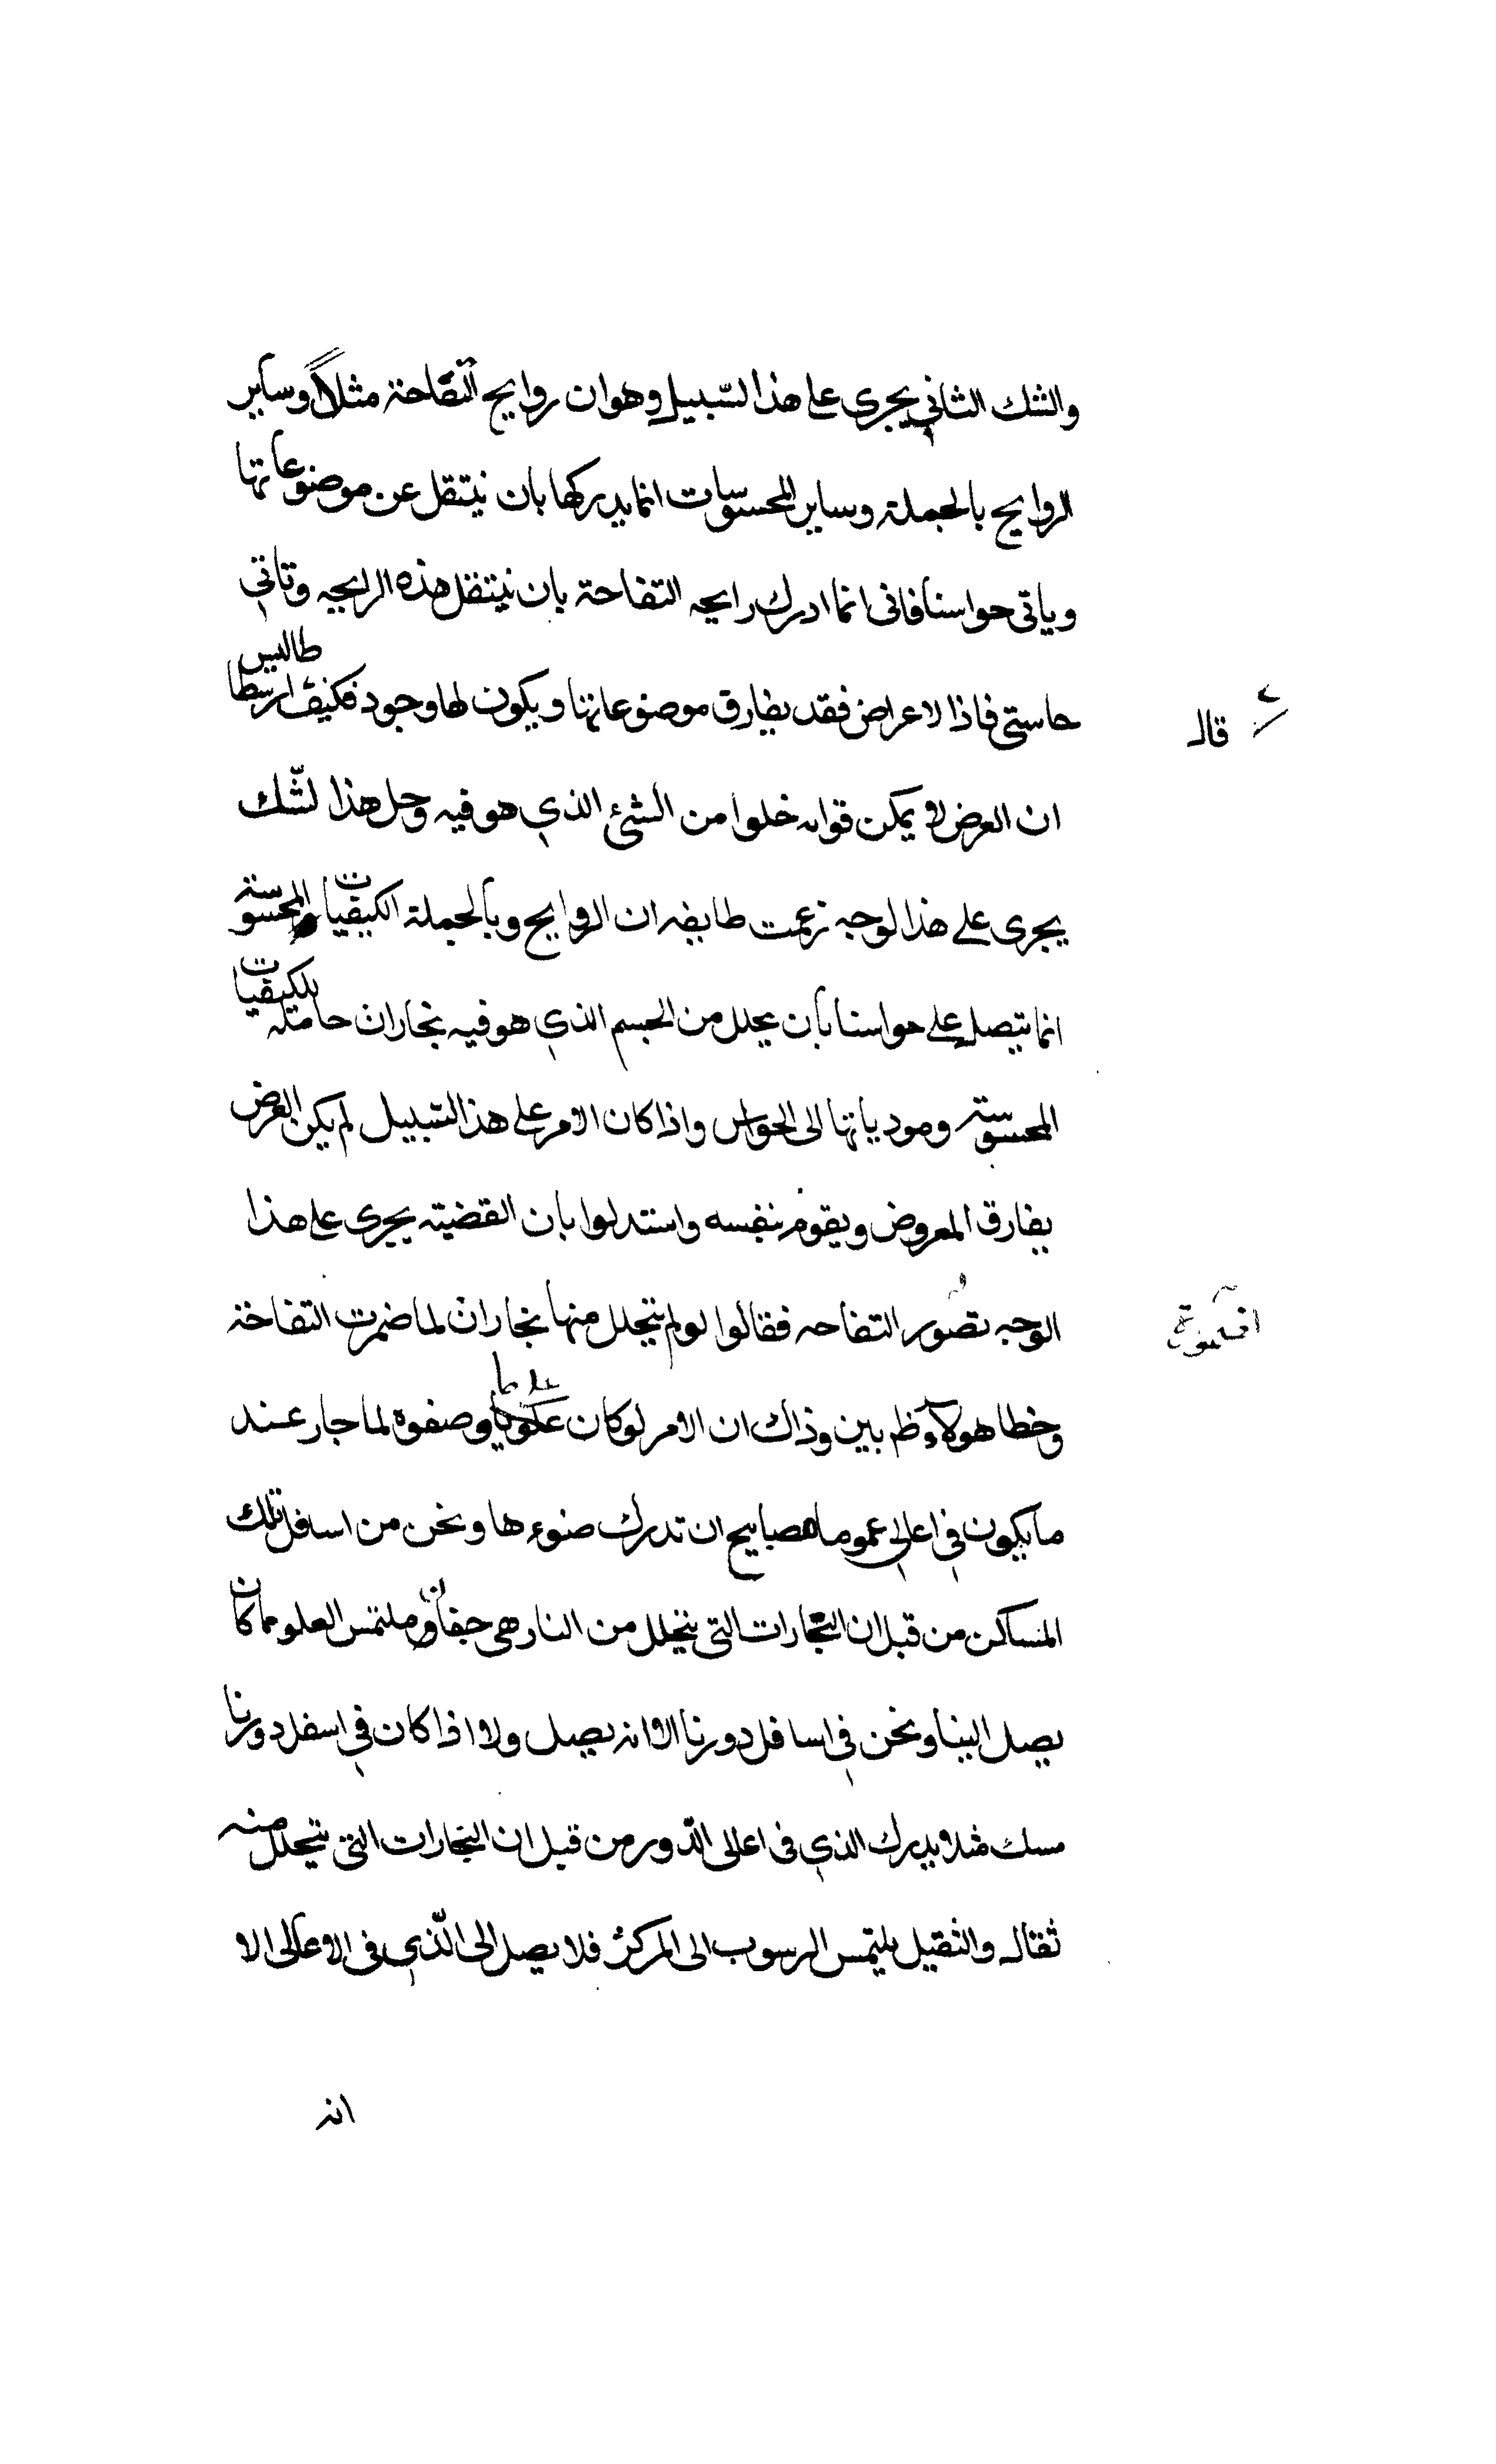 والشك الثاني يجرى على هذا لسّبيل وهو ان روايح التفاحة مثلاً وساير
الروايح بالجملة وساير المحسوسات انما يدركها بان ينتقل عن موضوعاتها
وياتى حواسنا فانى انما ادرك رايحه التفاحة بان ينتقل هذه الرايحه وتاتي
حاستى فاذا لاعراض فقد يفارق موضوعاتها ويكون لها وجود فكيف ارسطاطاليس
قال
ان العرض لا يمكن قوامه خلوا من الشئ الذي هو فيه وحل هذا لشّك
يجرى على هذا لوجه زعمت طايفه ان الروايح وبالجملة الكيفيات المحسوسة
انما يتصل على حواسنا بأن يحلل من الجسم الذي هو فيه بخاران حامله للكيفيات
المحسوسة ومودياتها الى الحواس واذا كان الامر على هذا السّبيل لم يكن العرض
يفارق المعروض ويقوم بنفسه واستدلوا بان القضية يجرى على هذا
الوجه تصور التفاحه فقالوا لو لم يتحلل منها بخاران لما ضمرت التفاحة
وخطا هولاء ظم بين وذاك ان الامر لو كان على ما وصفوه لما جار عند
ما يكون في اعالي عموما مصابيح ان تدرك ضوءها ونحن من اسافل تلك
المساكن من قبل ان البخارات التى يتحلل من النار هى خفاف وملتمس العلو مما كان
يصل الينا ونحن في اسافل دورنا الا انه يصل ولا اذا كان في اسفل دورنا
مسك مثلا يدرك الذي فى اعالى الدّور من قبل ان البخارات التى يتحلل منه
ثقال والثقيل يلتمس الرسوب الى المركز فلا يصل الى الّذي فى الاعالى الا
انه